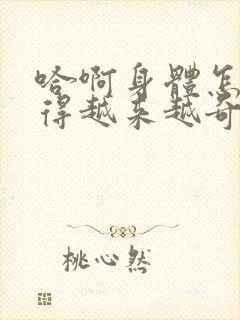 哈啊身體怎
得越來越奇
桃心然